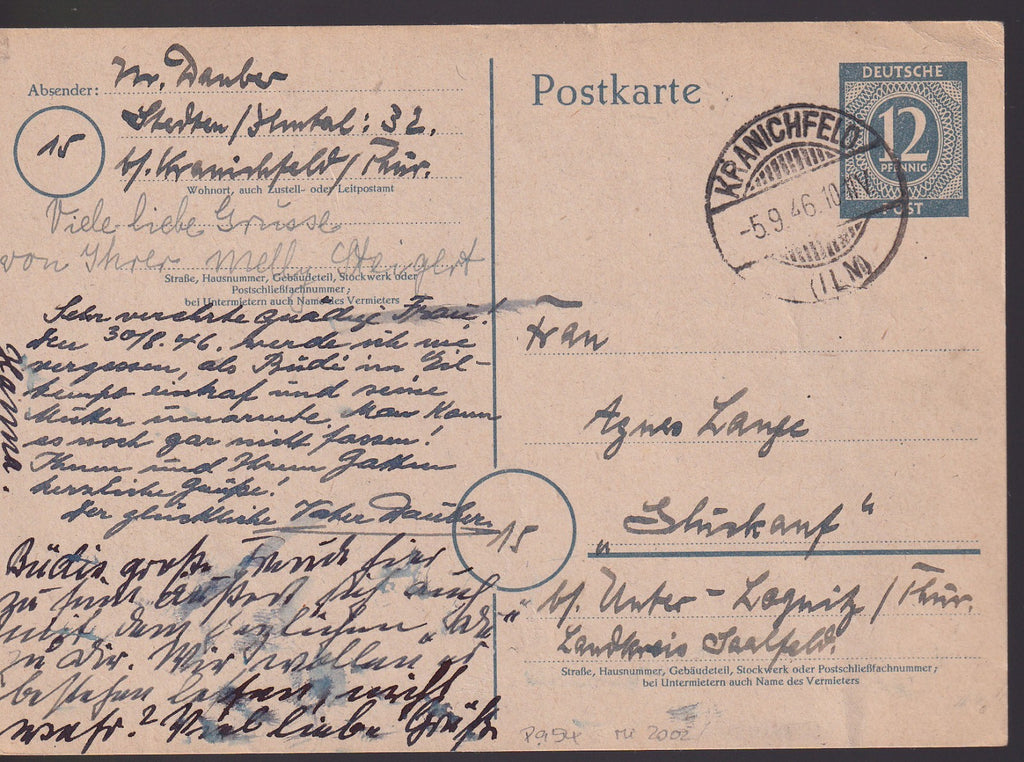 Absender: W. Dauber
Stedten/Ilmtal: 32.
15
b/. Kranichfeld/Thür.
Wohnort, auch Zustell- oder Leitpostamt
Viele liebe Grüsse
von Ihrer Melly Steigert
Straße, Hausnummer, Gebäudeteil, Stockwerk oder
Postschließfachnummer;
bei Untermietern auch Name des Vermieters
Sehr verehrte gnädige Frau!
Den 30/8.46. werde ich nie
vergessen, als Büdi im Eil-
tempo eintraf und seine
Mutter umarmte. Man kann
es noch gar nicht fassen!
Ihnen und Ihrem Gatten
herzliche Grüße!
Der glückliche Vater Dauber.
Hanna.
Büdis große Freude hier
zu sein äußert sich auch
mit dem
zu Dir. Wir wollen es
bestehen lassen, nicht
wahr? Viel liebe Grüße
Postkarte
DEUTSCHE
12
PFENNIG
POST
KRANICHFELD
-5.9.46.10-11V
(ILM)
Frau
Agnes Lange
"Glückauf"
15
b/. Unter-Loquitz/Thür.
Landkreis Saalfeld.
Straße, Hausnummer, Gebäudeteil, Stockwerk oder Postschließfachnummer;
bei Untermietern auch Name des Vermieters
P954 Mi 2002